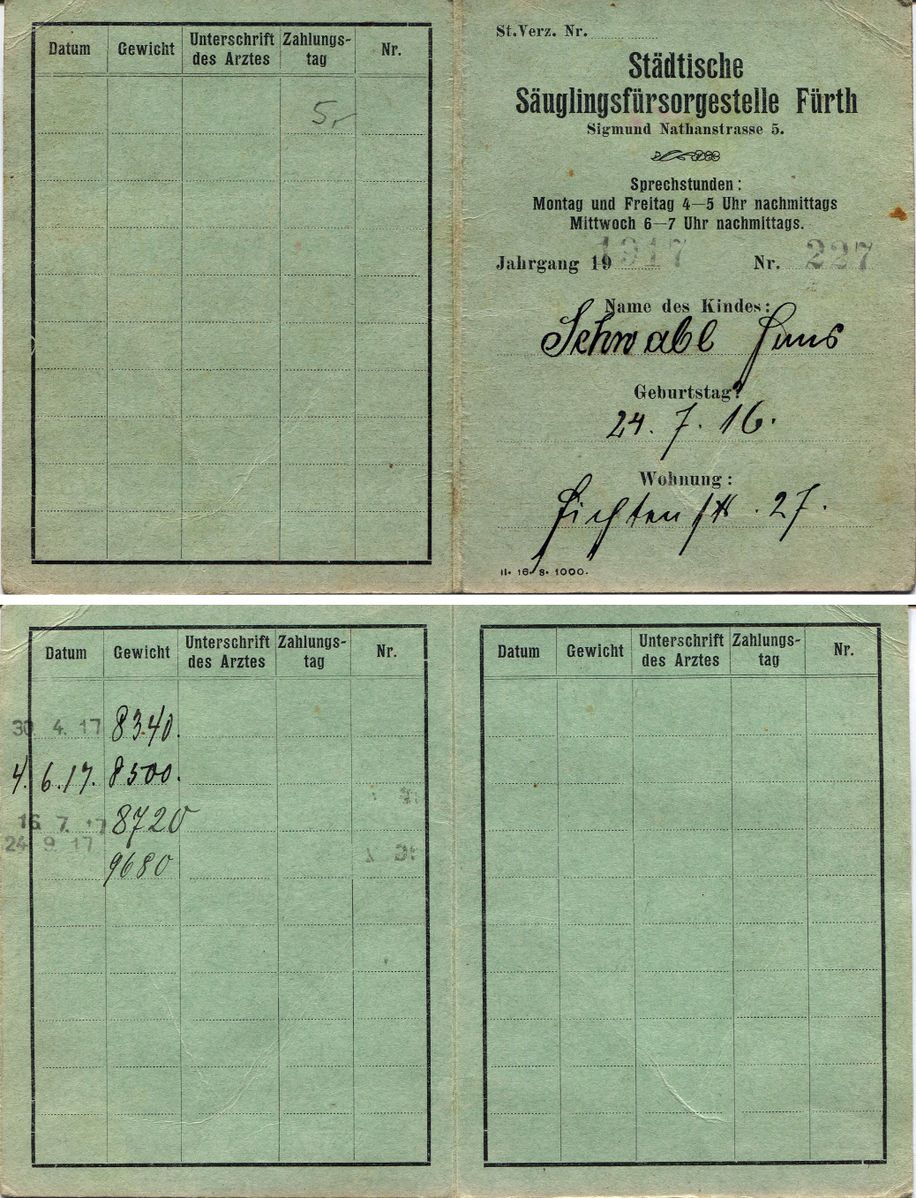 Datum Gewicht Unterschrift des Arztes Zahlungs-tag Nr.
St.Verz. Nr.
Städtische
Säuglingsfürsorgestelle Fürth
Sigmund Nathanstrasse 5.
Sprechstunden:
Montag und Freitag 4—5 Uhr nachmittags
Mittwoch 6—7 Uhr nachmittags.
Jahrgang 19 1917 Nr. 227
Name des Kindes:
Schwabl Hans
Geburtstag?
24. 7. 16.
Wohnung:
Fichtenstr. 27.
II. 16. 8. 1000.
Datum Gewicht Unterschrift des Arztes Zahlungs-tag Nr.
30. 4. 17 8340.
4. 6. 17. 8500.
16. 7. 17 8720
24. 9. 17 9680
Datum Gewicht Unterschrift des Arztes Zahlungs-tag Nr.